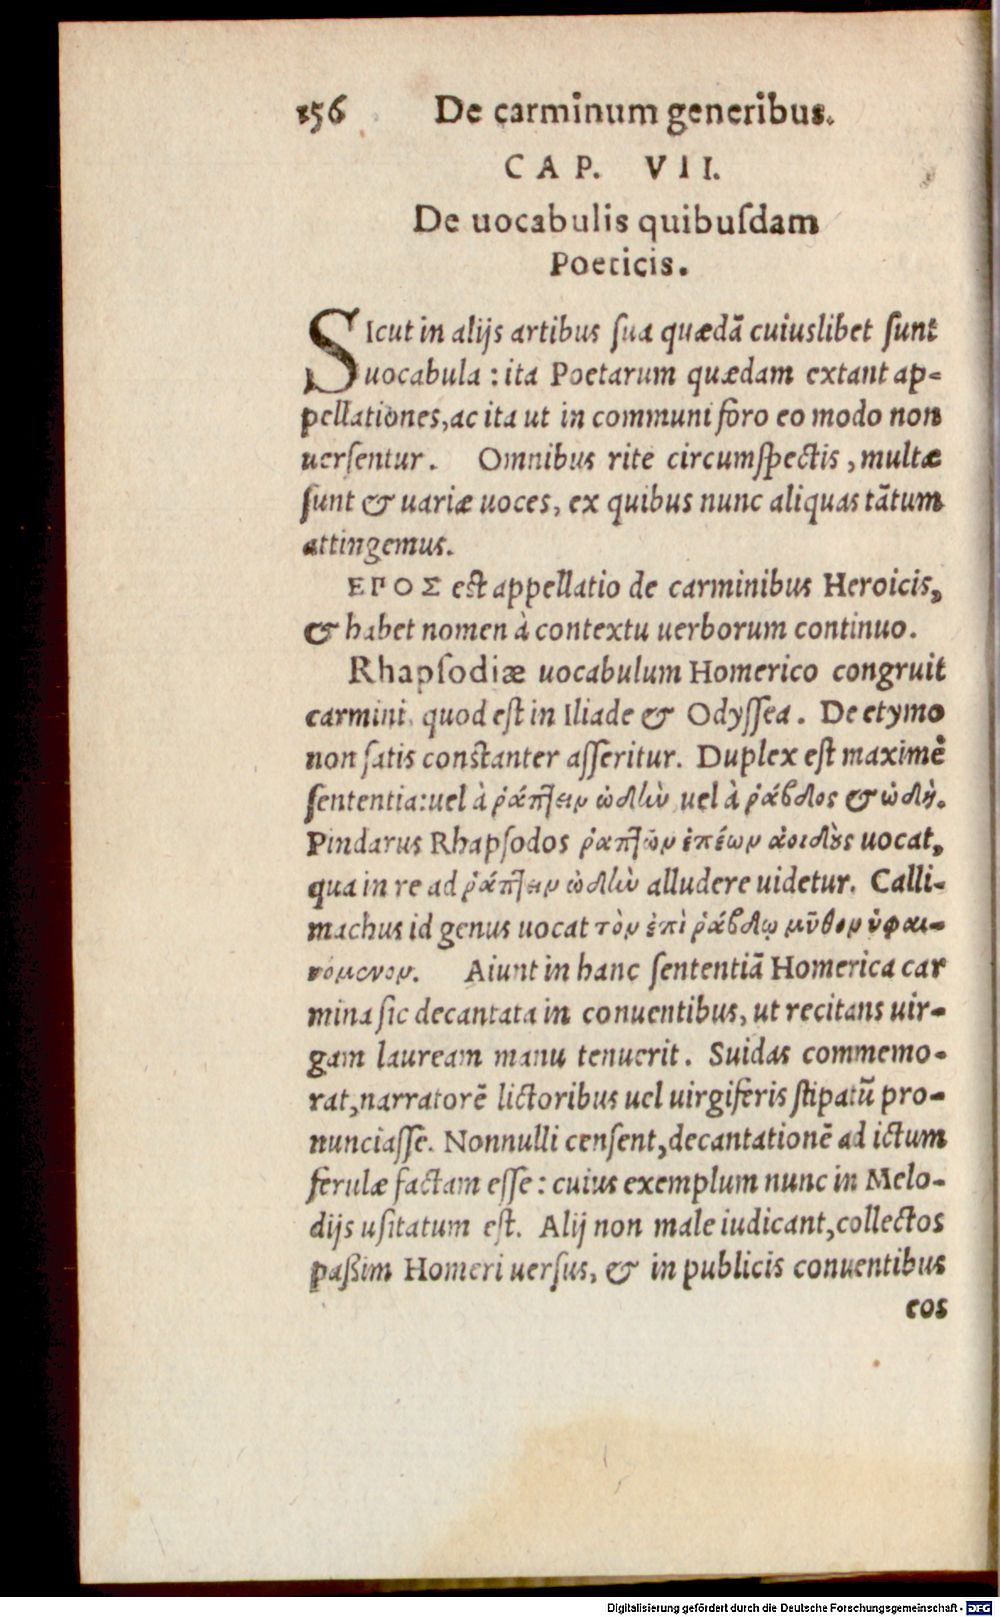 156 De carminum generibus.
CAP. VII.
De uocabulis quibuſdam
Poeticis.
SIcut in alijs artibus ſua quædā cuiuslibet ſunt
uocabula : ita Poetarum quædam extant ap=
pellationes, ac ita ut in communi foro eo modo non
uerſentur. Omnibus rite circumſpectis, multæ
ſunt & uariæ uoces, ex quibus nunc aliquas tātum
attingemus.
ΕΠΟΣ est appellatio de carminibus Heroicis,
& habet nomen à contextu uerborum continuo.
Rhapſodiæ uocabulum Homerico congruit
carmini, quod eſt in Iliade & Odyſſea. De etymo
non ſatis conſtanter aſſeritur. Duplex eſt maximè
ſententia: uel à ῥάπτειν ὠδὴν uel à ῥάβδος & ὠδή.
Pindarus Rhapſodos ῥαπτῶν ἐπέων ἀοιδοὺς uocat,
qua in re ad ῥάπτειν ὠδὴν alludere uidetur. Calli-
machus id genus uocat τὸν ἐπὶ ῥάβδῳ μῦθον ὑφαι-
νόμενον. Aiunt in hanc ſententiā Homerica car
mina ſic decantata in conuentibus, ut recitans uir-
gam lauream manu tenuerit. Suidas commemo-
rat, narratorē lictoribus uel uirgiferis ſtipatū pro-
nunciaſſe. Nonnulli cenſent, decantationē ad ictum
ferulæ factam eſſe : cuius exemplum nunc in Melo-
dijs uſitatum eſt. Alij non male iudicant, collectos
paßim Homeri uerſus, & in publicis conuentibus
eos
Digitalisierung gefördert durch die Deutsche Forschungsgemeinschaft - DFG